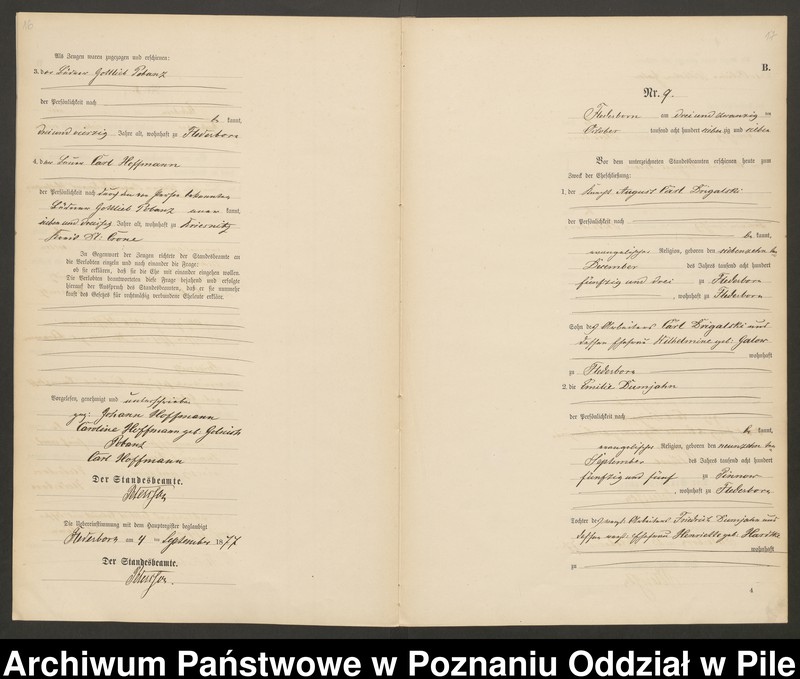 Als Zeugen waren zugezogen und erschienen:
3. der Büdner Gottlieb Pobanz
der Persönlichkeit nach
be kannt,
drei und vierzig Jahre alt, wohnhaft zu Flederborn
4. der Carl Hoffmann
der Persönlichkeit nach durch den
Büdner Gottlieb Pobanz kannt,
sieben und dreißig Jahre alt, wohnhaft zu
Kreis Crone
In Gegenwart der Zeugen richtete der Standesbeamte an
die Verlobten einzeln und nach einander die Frage:
ob sie erklären, daß sie die Ehe mit einander eingehen wollen.
Die Verlobten beantworteten diese Frage bejahend und erfolgte
hierauf der Ausspruch des Standesbeamten, daß er sie nunmehr
kraft des Gesetzes für rechtmäßig verbundene Eheleute erkläre.
Vorgelesen, genehmigt und unterschrieben
gez: Johann Hoffmann
Caroline Hoffmann geb.
Pobanz
Carl Hoffmann
Der Standesbeamte.
Die Uebereinstimmung mit dem Hauptregister beglaubigt
Flederborn am 4 ten September 1877
Der Standesbeamte.
17
B.
Nr. 9.
Flederborn am drei und zwanzig ten
October tausend acht hundert sieben zig und sieben
Vor dem unterzeichneten Standesbeamten erschienen heute zum
Zweck der Eheschließung:
1. der Knecht August Carl Drigalski
der Persönlichkeit nach
be kannt,
evangelischer Religion, geboren den siebenzehn ten
December des Jahres tausend acht hundert
fünfzig und drei zu Flederborn
, wohnhaft zu Flederborn
Sohn des Arbeiters Carl Drigalski und
dessen Ehefrau Wilhelmine geb: Galow
wohnhaft
zu Flederborn
2. die Emilie Dumjahn
der Persönlichkeit nach
be kannt,
evangelischer Religion, geboren den neunzehn ten
September des Jahres tausend acht hundert
fünfzig und fünf zu Pinnow
, wohnhaft zu Flederborn
Tochter des Arbeiters Friedrich Dumjahn und
dessen Ehefrau Henriette geb:
wohnhaft
zu
4
Archiwum Państwowe w Poznaniu Oddział w Pile